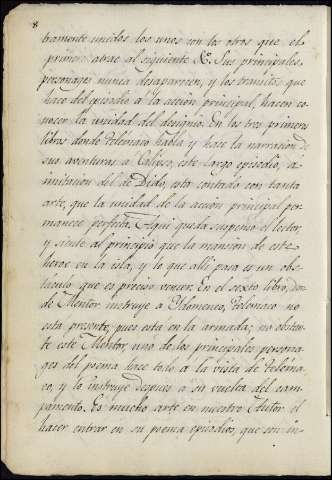 8
tramente unidos los unos con los otros que el
primero atrae al siguiente &c. Sus principales
personages nunca desaparecen, y los transitos que
hace del episodio á la acción principal, hacen co-
nocer la unidad del designio. En los tres primeros
libros donde Telemaco habla y hace la narracion de
sus aventuras á Calipso, este largo episodio, á
imitación del de Dido, está contado con tanta
arte, que la unidad de la accion principal per-
manece perfecta. Aqui queda suspenso el lector,
y siente al principio que la mansion de este
heroe en la isla, y lo que alli pasa es un obs-
taculo que es preciso vencer. En el sexto libro, don-
de Mentor instruye á Ydomeneo, Telemaco no
está presente, pues está en la armada; no obstan-
te este Mentor, uno de los principales persona-
ges del poema hace todo á la vista de Telema-
co, y lo instruye despues á su vuelta del cam-
pamento. Es mucho arte en nuestro Autor el
hacer entrar en su poema episodios, que son in-